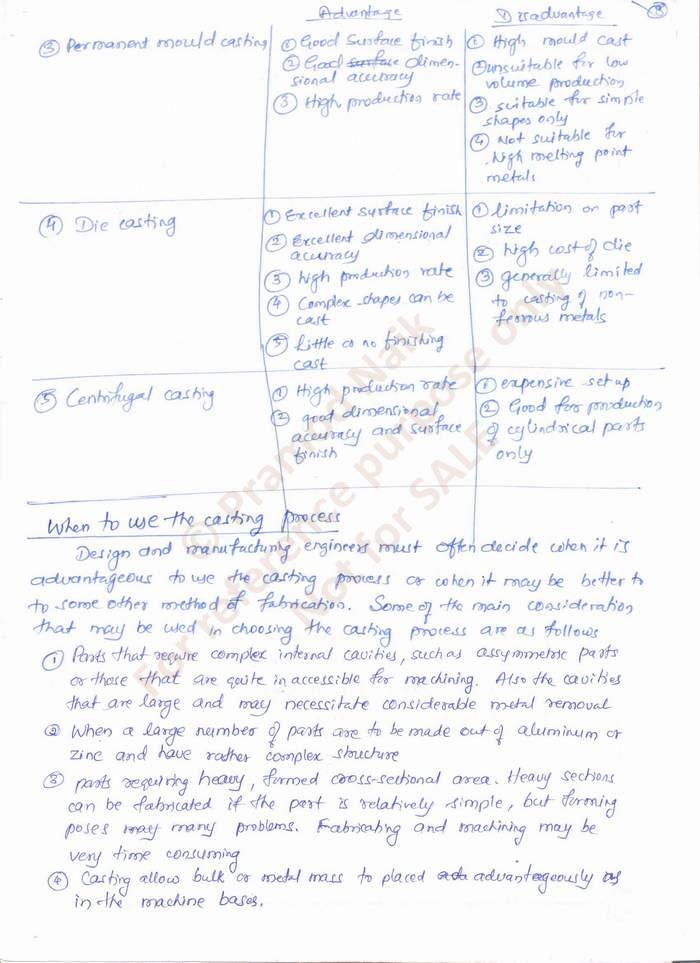 Advantage Disadvantage
③ Permanent mould casting
① Good surface finish
② Good surface dimen-
sional accuracy
③ High production rate
① High mould cast
② unsuitable for low
volume production
③ suitable for simple
shapes only
④ Not suitable for
high melting point
metals
④ Die casting
① Excellent surface finish
② Excellent dimensional
accuracy
③ high production rate
④ Complex shapes can be
cast
⑤ little or no finishing
cast
① limitation on part
size
② high cost of die
③ generally limited
to casting of non-
ferrous metals
⑤ Centrifugal casting
① High production rate
② good dimensional
accuracy and surface
finish
① expensive set up
② Good for production
of cylindrical parts
only
When to use the casting process
Design and manufacturing engineers must often decide when it is
advantageous to use the casting process or when it may be better to
to some other method of fabrication. Some of the main consideration
that may be used in choosing the casting process are as follows
① Parts that require complex internal cavities, such as assymmetric parts
or those that are quite in accessible for machining. Also the cavities
that are large and may necessitate considerable metal removal
② When a large number of parts are to be made out of aluminum or
zinc and have rather complex structure
③ parts requiring heavy, formed cross-sectional area. Heavy sections
can be fabricated if the part is relatively simple, but forming
poses may many problems. Fabricating and machining may be
very time consuming
④ Casting allow bulk or metal mass to placed advantageously as
in the machine bases.
© Pramod Naik
For reference purpose only
Not for SALE